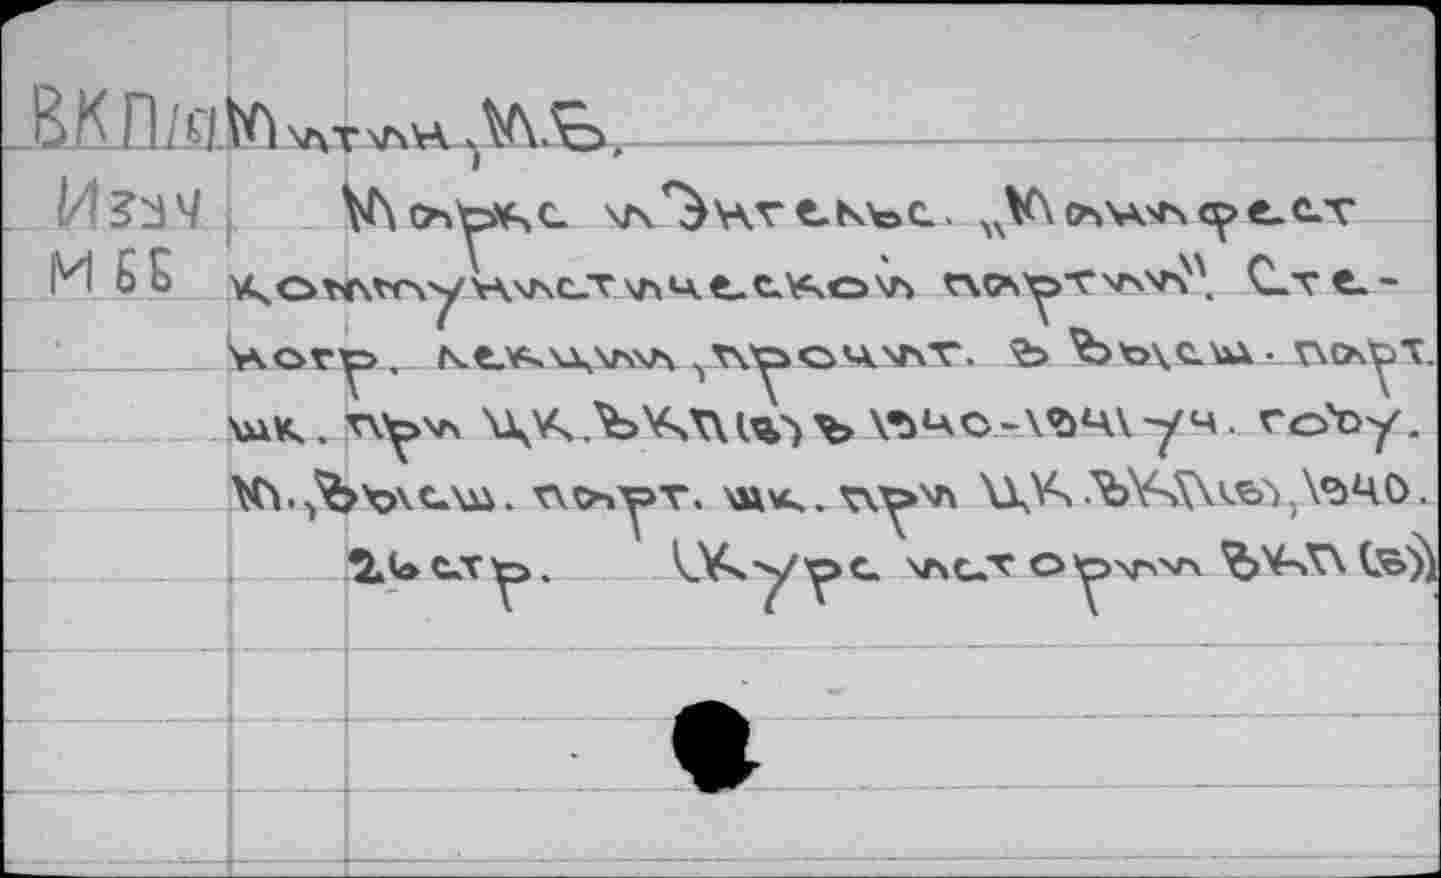 ВКП/б/ Митин, М.Б.
Изуч Маркс и Энгельс. „Манифест
МББ коммунистической партии“. Сте-
ногр. лекции, прочит. в Высш. парт.
шк. при ЦК ВКП(б) в 1940-1941 уч. году.
М., Высш. парт. шк. при ЦК ВКП(б), 1940.
21 стр. (Курс истории ВКП(б))